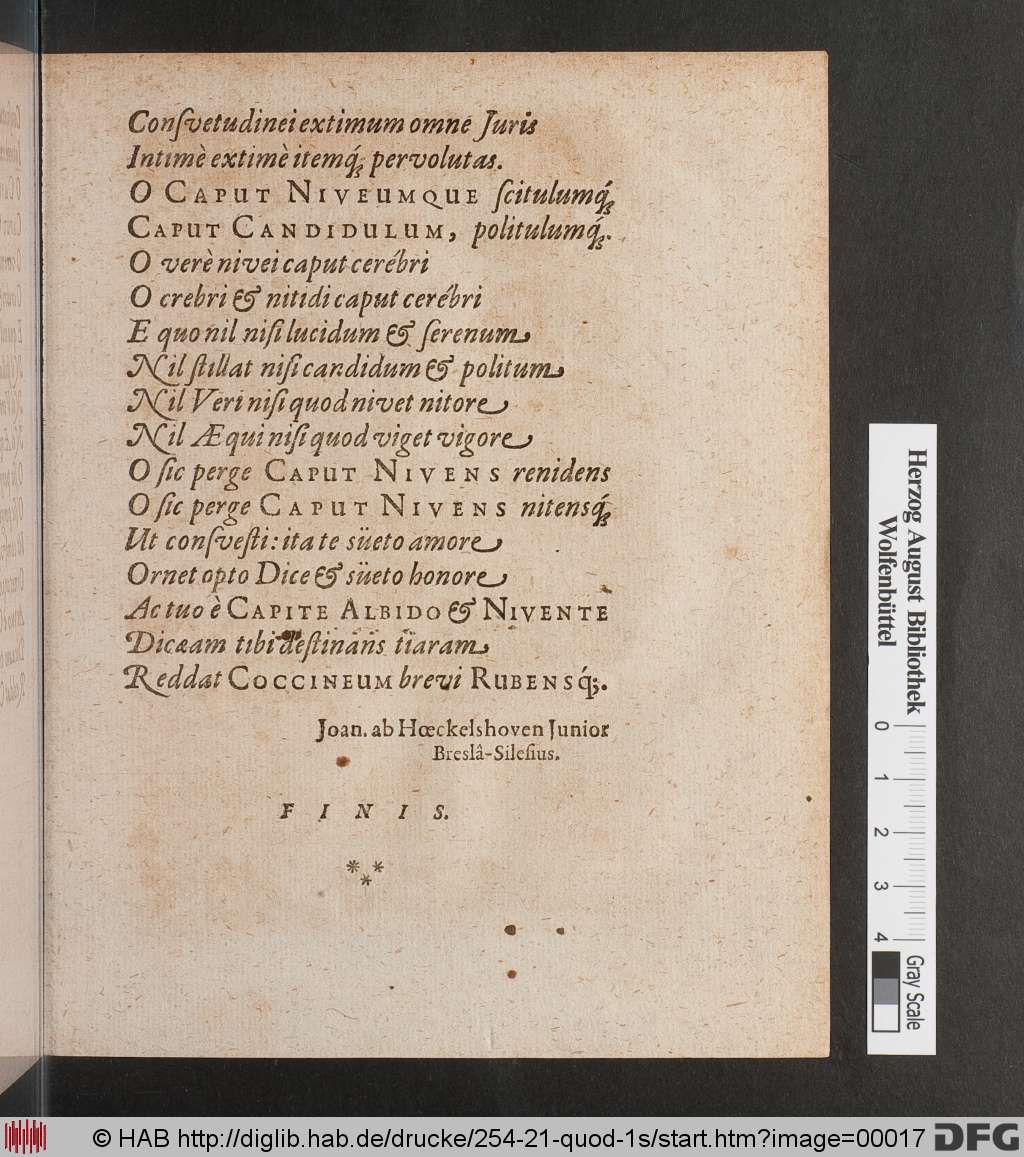 Conſvetudinei extimum omne Juris
Intimè extimè itemq́ꝫ pervolutas.
O CAPUT NIVEUMQUE ſcitulumq́ꝫ
CAPUT CANDIDULUM, politulumq́ꝫ.
O verè nivei caput cerébri
O crebri & nitidi caput cerébri
E quo nil niſi lucidum & ſerenum
Nil ſtillat niſi candidum & politum
Nil Veri niſi quod nivet nitore
Nil Æqui niſi quod viget vigore
O ſic perge CAPUT NIVENS renidens
O ſic perge CAPUT NIVENS nitensq́ꝫ
Ut conſveſti: ita te süeto amore
Ornet opto Dice & süeto honore
Ac tuo è CAPITE ALBIDO & NIVENTE
Dicæam tibi deſtinans tiaram
Reddat COCCINEUM brevi RUBENSq́;.
Joan. ab Hœckelshoven Junior
Breslâ-Sileſius.
F I N I S.
* * *
Herzog August Bibliothek
Wolfenbüttel
0 1 2 3 4
Gray Scale
© HAB http://diglib.hab.de/drucke/254-21-quod-1s/start.htm?image=00017
DFG